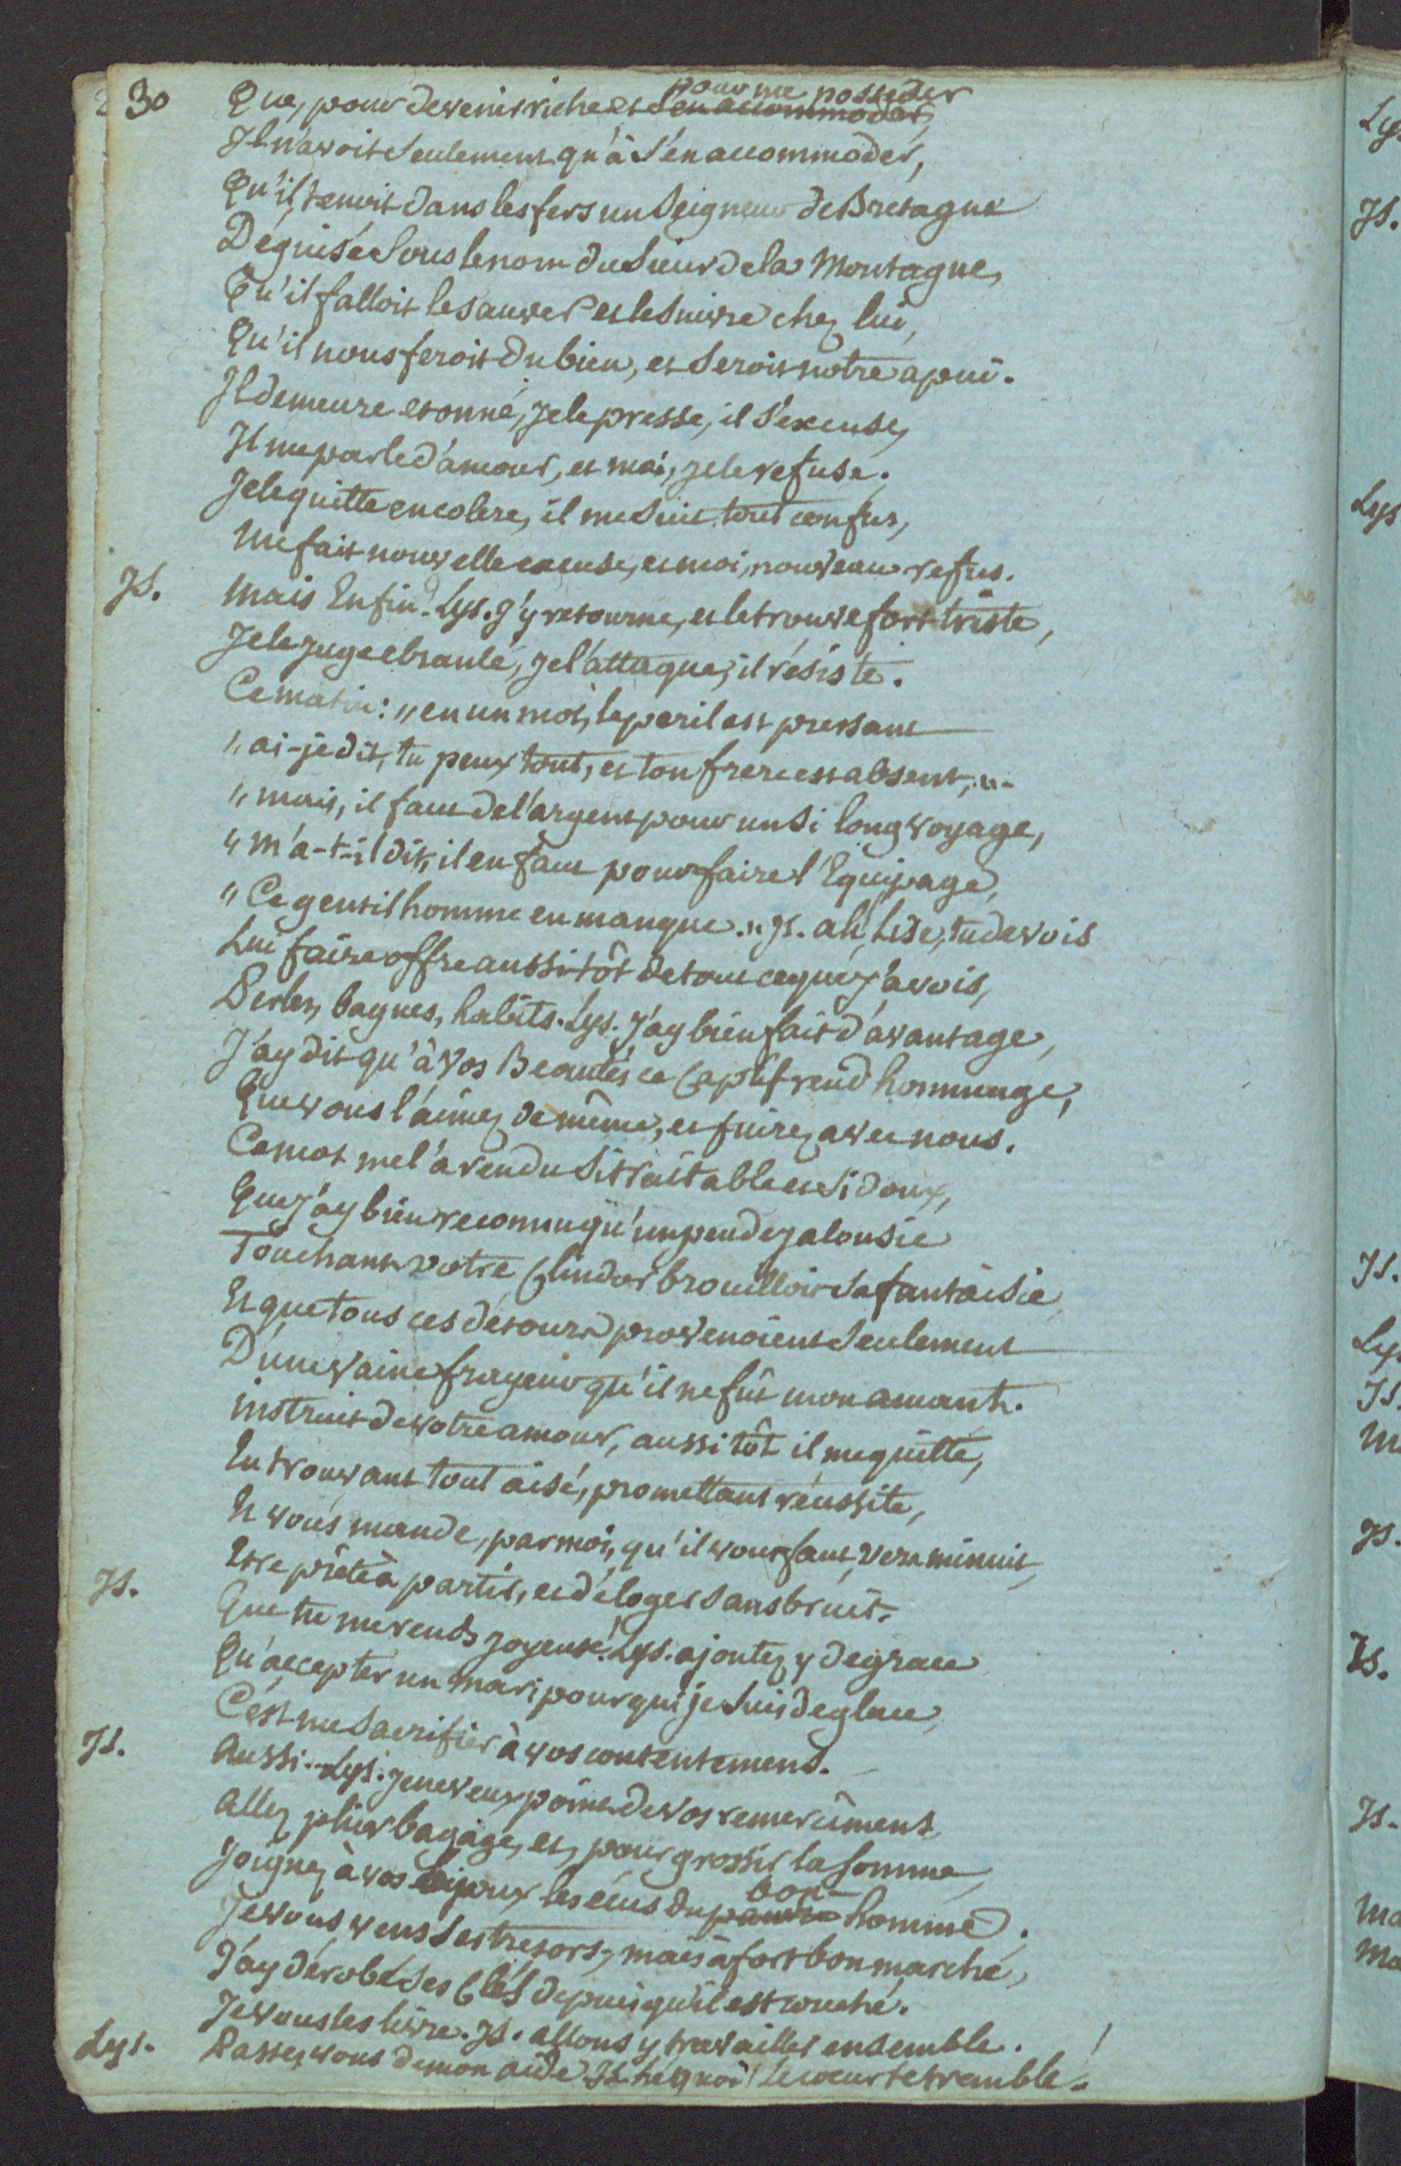 30
Que, pour devenir riche et pour me posseder
s'en accommoder,
Il n'avoit seulement qu'à s'en accommoder,
Qu'il tenoit dans les fers un Seigneur de Bretagne
Déguisé sous le nom du sieur de la Montagne,
Qu'il falloit le sauver et le suivre chez lui,
Qu'il nous feroit du bien, et seroit notre apui.
Il demeure etonné, je le presse, il s'excuse,
Il me parle d'amour, et moi, je le refuse.
Je le quitte en colere, il me suit tout confus,
Me fait nouvelle excuse, et moi, nouveau refus.
Js. Mais Enfin? Lys. J'y retourne, et le trouve fort triste,
Je le juge ebranlé, je l'attaque, il résiste.
Ce matin: „ en un mot, le peril est pressant
„ ai-je dit, tu peux tout, et ton frere est absent, „-
„ mais, il faut de l'argent pour un si long voyage,
„ m'a-t-il dit, il en faut pour faire l'Equipage,
„ Ce gentilhomme en manque.„ Js. ah, Lise, tu devois
Lui faire offre aussi-tôt de tout ce que j'avois,
Perles, bagues, habits. Lys. J'ay bien fait d'avantage,
J'ay dit qu'à vos Beautés ce Captif rend hommage,
Que vous l'aimez de même, et fuirez avec nous.
Ce mot me l'a rendu si traitable et si doux,
Que j'ay bien reconnu qu'un peu de jalousie
Touchant votre Clindor brouilloit sa fantaisie
Et que tous ces détours provenoient seulement
D'une vaine frayeur qu'il ne fût mon amant.
instruit de votre amour, aussi tôt il me quitte,
En trouvant tout aisé, promettant réussite,
Et vous mande, par moi, qu'il vous faut, vers minuit,
Etre prête à partir, et déloger sans bruit.
Js. Que tu me rends joyeuse! Lys. ajoutez y de grace
Qu'accepter un mari pour qui je suis de glace,
C'est me sacrifier à vos contentemens.
Js. Aussi.. Lys. je ne veux point de vos remercîmens
Allez plier bagage, et, pour grossir la somme,
Joignez à vos bijoux les écus du pauvre bon-homme.
Je vous vens ses tresors, mais à fort bon marché,
J'ay dérobé ses Clés depuis qu'il est couché.
Je vous les livre. Js. allons y travailler ensemble.
Lys. Passez vous de mon aide Js. hé quoi! le cœur te tremble.
Lys
Js.
Lys
Js.
Ly
Js
M
Js.
Js.
Js.
Ma
Ma